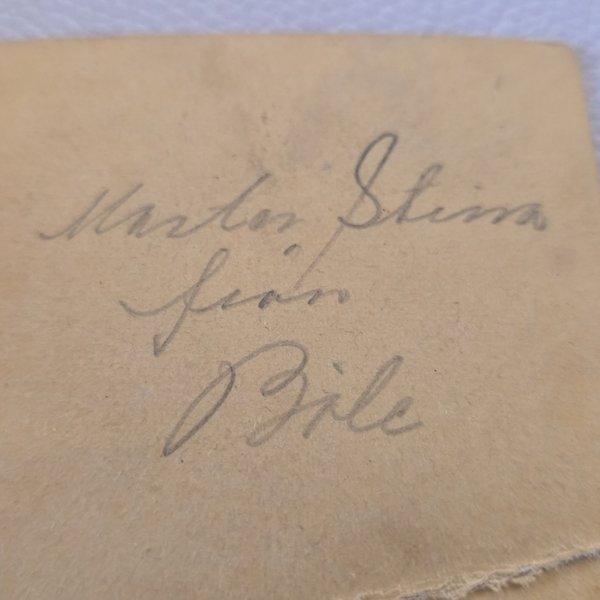 Moster Stina
från
Böle